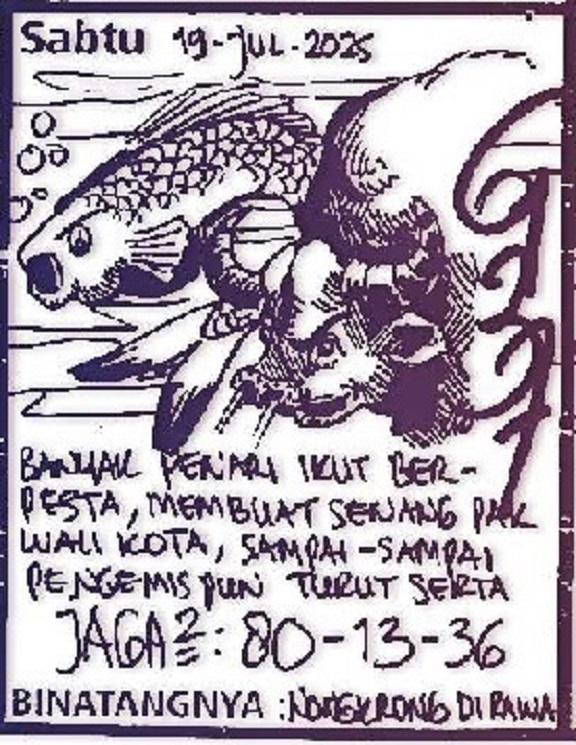 Sabtu 19-JUL-2025
BANYAK PENARI IKUT BER-
PESTA, MEMBUAT SENANG PAK
WALI KOTA, SAMPAI-SAMPAI
PENGEMIS PUN TURUT SERTA
JAGA2=: 80-13-36
BINATANGNYA :NONGKRONG DI RAWA